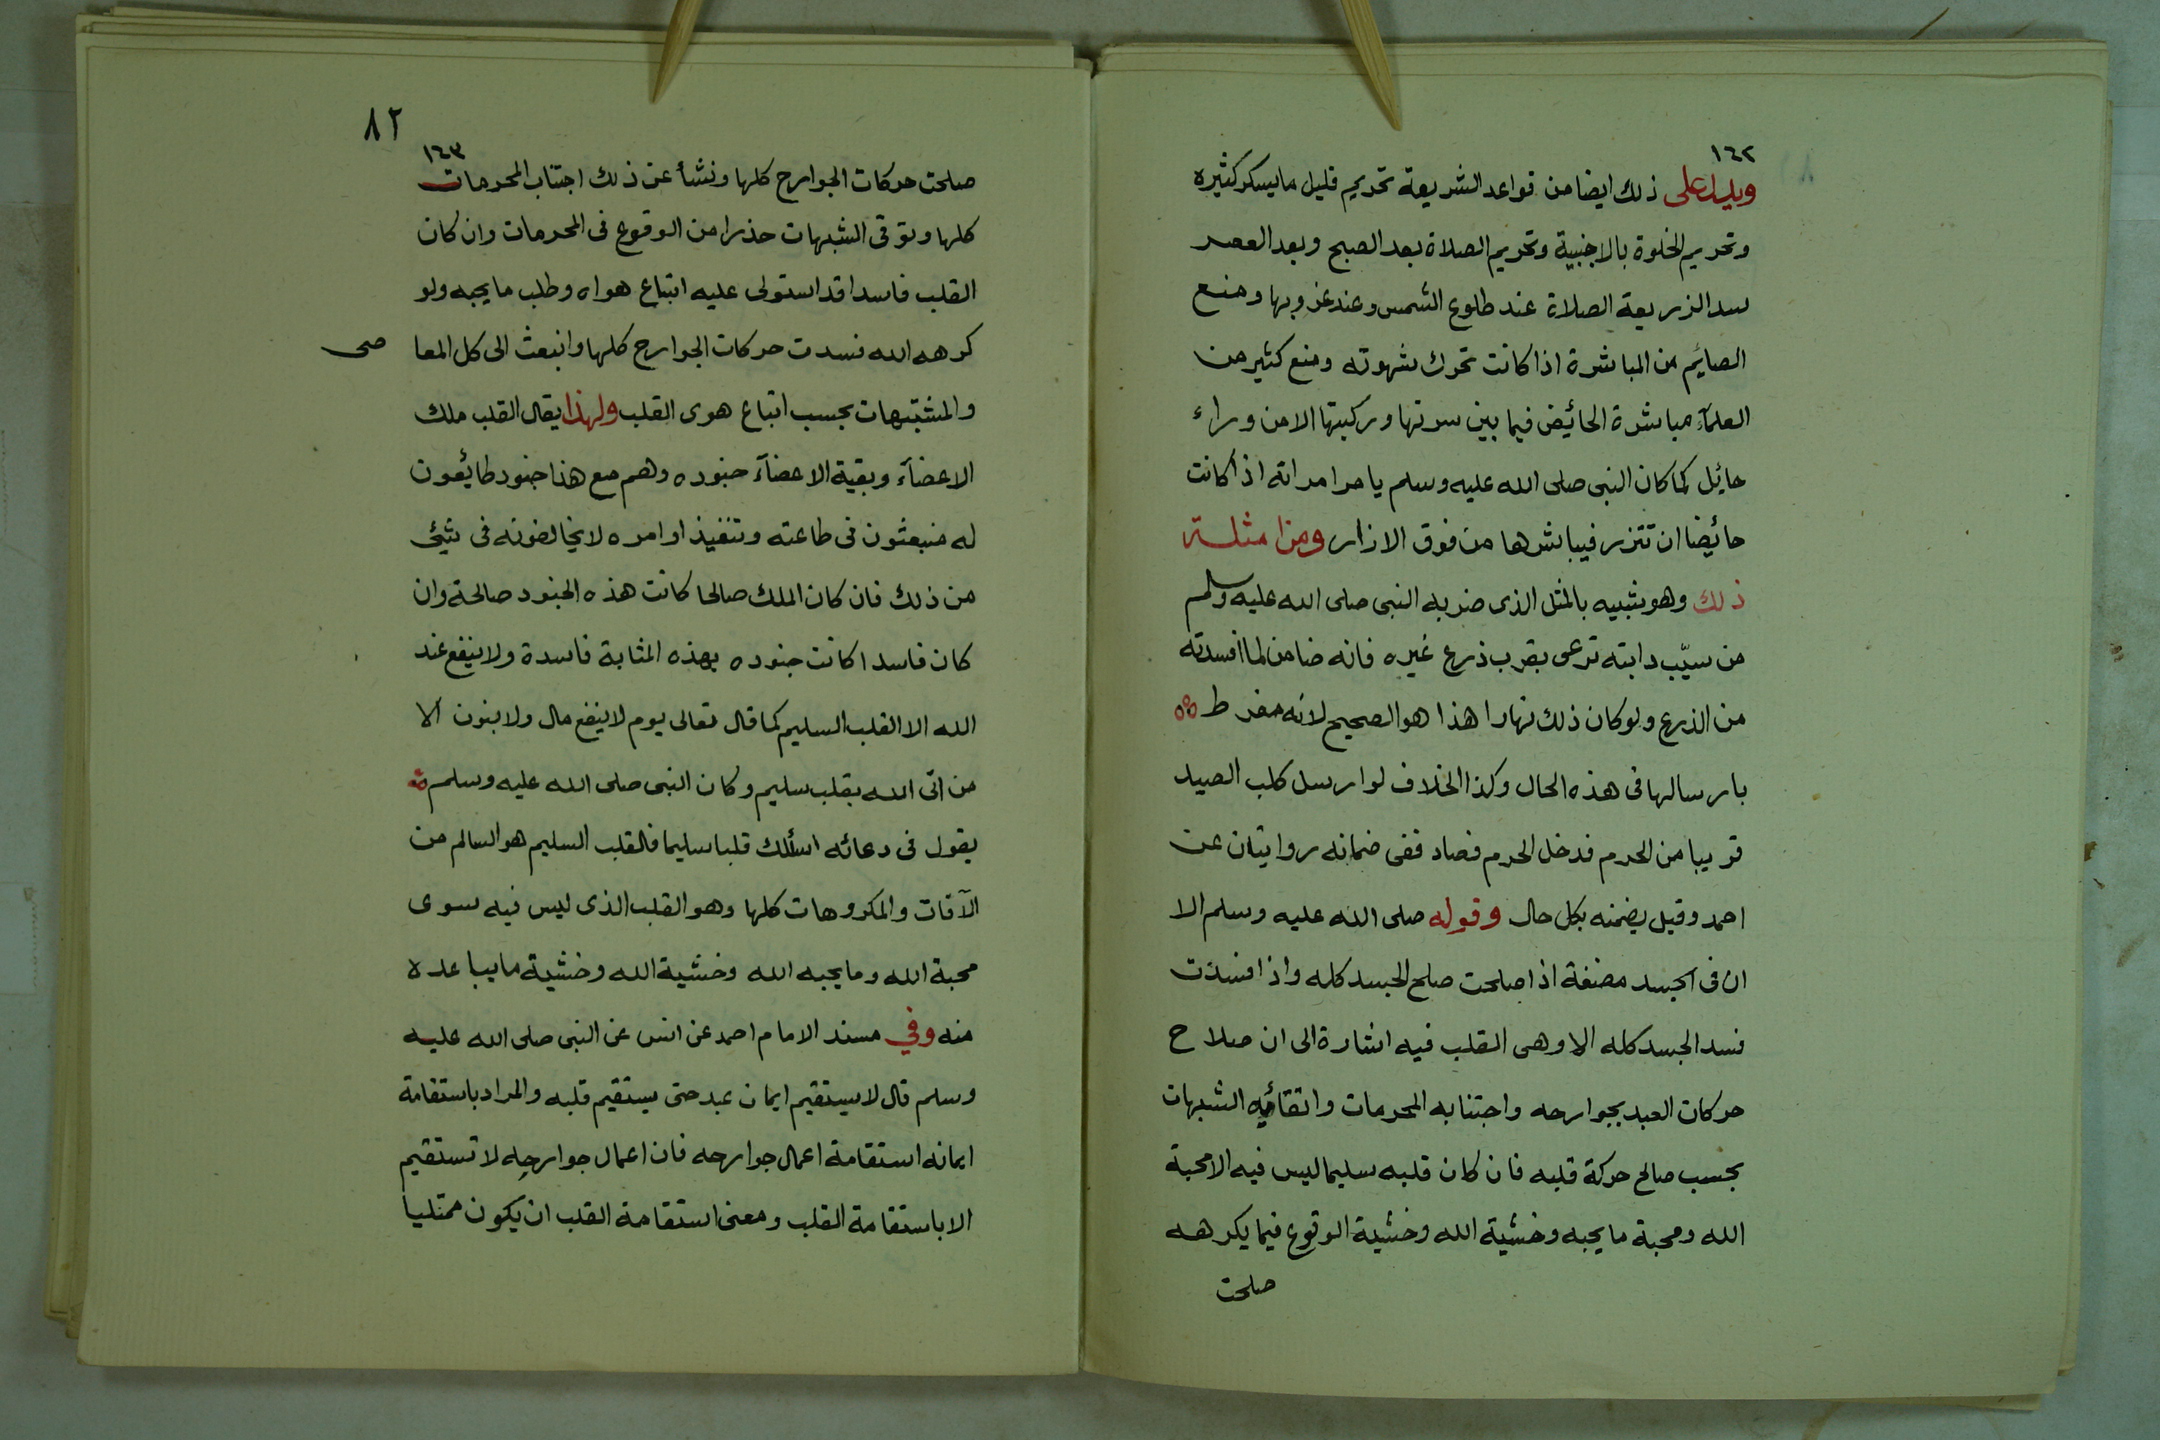 ١٦٢
ويدل على ذلك ايضا من قواعد الشريعة تحريم قليل ما يسكر كثيره
وتحريم الخلوة بالاجنبية وتحريم الصلاة بعد الصبح وبعد العصر
سد الذريعة الصلاة عند طلوع الشمس وعند غروبها ومنع
الصائيم من المباشرة اذا كانت تحرك شهوته ومنع كثير من
العلمآء مباشرة الحائيض فيما بين سرتها وركبتها الا من وراء
حائيل كما كان النبى صلى الله عليه وسلم يامر امراته اذا كانت
حائيضا ان تتزر فيباشرها من فوق الازار ومن امثلة
ذلك وهو شبيه بالمثل الذى ضربه النبى صلى الله عليه وسلم
من سيّب دابته ترعى بقرب ذرع غيره فانه ضامن لما افسدته
من الذرع ولو كان ذلك نهارا هذا هو الصحيح لانه مفرط
بارسالها فى هذه الحال وكذا الخلاف لو ارسل كلب الصيد
قريبا من الحرم فدخل الحرم فصاد ففى ضمانه روايتان عن
احمد وقيل يضمنه بكل حال وقوله صلى الله عليه وسلم الا
ان فى الجسد مضغة اذا صلحت صلح الجسد كله واذا فسدت
فسد الجسد كله الا وهى القلب فيه اشارة الى ان صلاح
حركات العبد بجوارحه واجتنابه المحرمات واتقائيه الشبهات
بحسب صالح حركة قلبه فان كان قلبه سليما ليس فيه الا محبة
الله ومحبة ما يحبه وخشية الله وخشية الوقوع فيما يكرهه
صلحت
٨٢
١٦٣
صلحت حركات الجوارح كلها ونشأ عن ذلك اجتناب المحرمات
كلها وتوقى الشبهات حذرا من الوقوع فى المحرمات وان كان
القلب فاسدا قد استولى عليه اتباع هواه وطلب ما يحبه ولو
كرهه الله فسدت حركات الجوارح كلها وانبعث الى كل المعا صى
والمشتبهات بحسب اتباع هوى القلب ولهذا يقال القلب ملك
الاعضآء وبقية الاعضآء جنوده وهم مع هذا جنود طائعون
له منبعثون فى طاعته وتنفيذ اوامره لا يخالفونه فى شيئ
من ذلك فان كان الملك صالحا كانت هذه الجنود صالحة وان
كان فاسدا كانت جنوده بهذه المثابة فاسدة ولا ينفع عند
الله الا القلب السليم كما قال تعالى يوم لا ينفع مال ولا بنون الا
من اتى الله بقلب سليم وكان النبى صلى الله عليه وسلم
يقول فى دعائه اسألك قلبا سليما فالقلب السليم هو السالم من
الآفات والمكروهات كلها وهو القلب الذى ليس فيه سوى
محبة الله وما يحبه الله وخشية الله وخشية ما يباعده
منه وفي مسند الامام احمد عن انس عن النبى صلى الله عليه
وسلم قال لا يستقيم ايمان عبد حتى يستقيم قلبه والمراد باستقامة
ايمانه استقامة اعمال جوارحه فان اعمال جوارحه لا تستقيم
الا باستقامة القلب ومعنى استقامة القلب ان يكون ممتليا